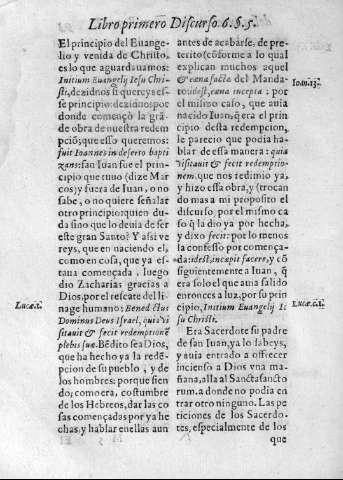 Libro primero Discurso. 6. §. 5.
El principio del Euange-
lio y venida de Christo,
es lo que aguardauamos:
Initium Euangelij Iesu Chri-
sti, dezidnos si quereys es-
se principio: dezidnos por
donde començò la grã-
de obra de nuestra redem
pciõ; que esso queremos:
fuit Ioannes in deserto bapti
zans: san Iuan fue el princi
pio que tuuo (dize Mar
cos) y fuera de Iuan, o no
sabe, o no quiere señalar
otro principio: quien du-
da sino que lo deuia de ser
este gran Santo? Y assi ve
reys, que en naciendo el,
como en cosa, que ya es-
taua començada, luego
dio Zacharias gracias a
Dios, por el rescate del li-
nage humano: Benedictus
Dominus Deus Israel, quia vi
sitauit & fecit redemptionẽ
plebis suæ. Bẽdito sea Dios,
que ha hecho ya la redẽ-
pcion de su pueblo, y de
los hombres: porque sien
do, como era, costumbre
de los Hebreos, dar las co
sas començadas por ya he
chas, y hablar en ellas aun
Lucæ. 1.
antes de acabarse, de pre-
terito (cõforme a lo qual
explican muchos aquel
& cœna facta del Manda-
to: idest, cœna incepta: por
el mismo caso, que auia
nacido Iuan, q̃ era el prin
cipio desta redempcion,
le parecio que podia ha-
blar de essa manera: quia
visitauit & fecit redemptio-
nem. que nos redimio ya,
y hizo essa obra, y (trocan
do mas a mi proposito el
discurso, por el mismo ca
so q̃ la dio ya por hecha,
y dixo fecit: por lo menos
la confesso por comença-
da: idest, incapit facere, y cõ
siguientemente a Iuan, q̃
era solo el que auia salido
entonces a luz, por su prin
cipio, Initium Euangelij Ie
su Christi.
Era Sacerdote su padre
de san Iuan, ya lo sabeys,
y auia entrado a offrecer
incienso a Dios vna ma-
ñana, alla al Sancta sancto
rum. a donde no podia en
trar otro ninguno. Las pe
ticiones de los Sacerdo-
tes, especialmente de los
que
Ioan. 13.
Lucæ. 1.